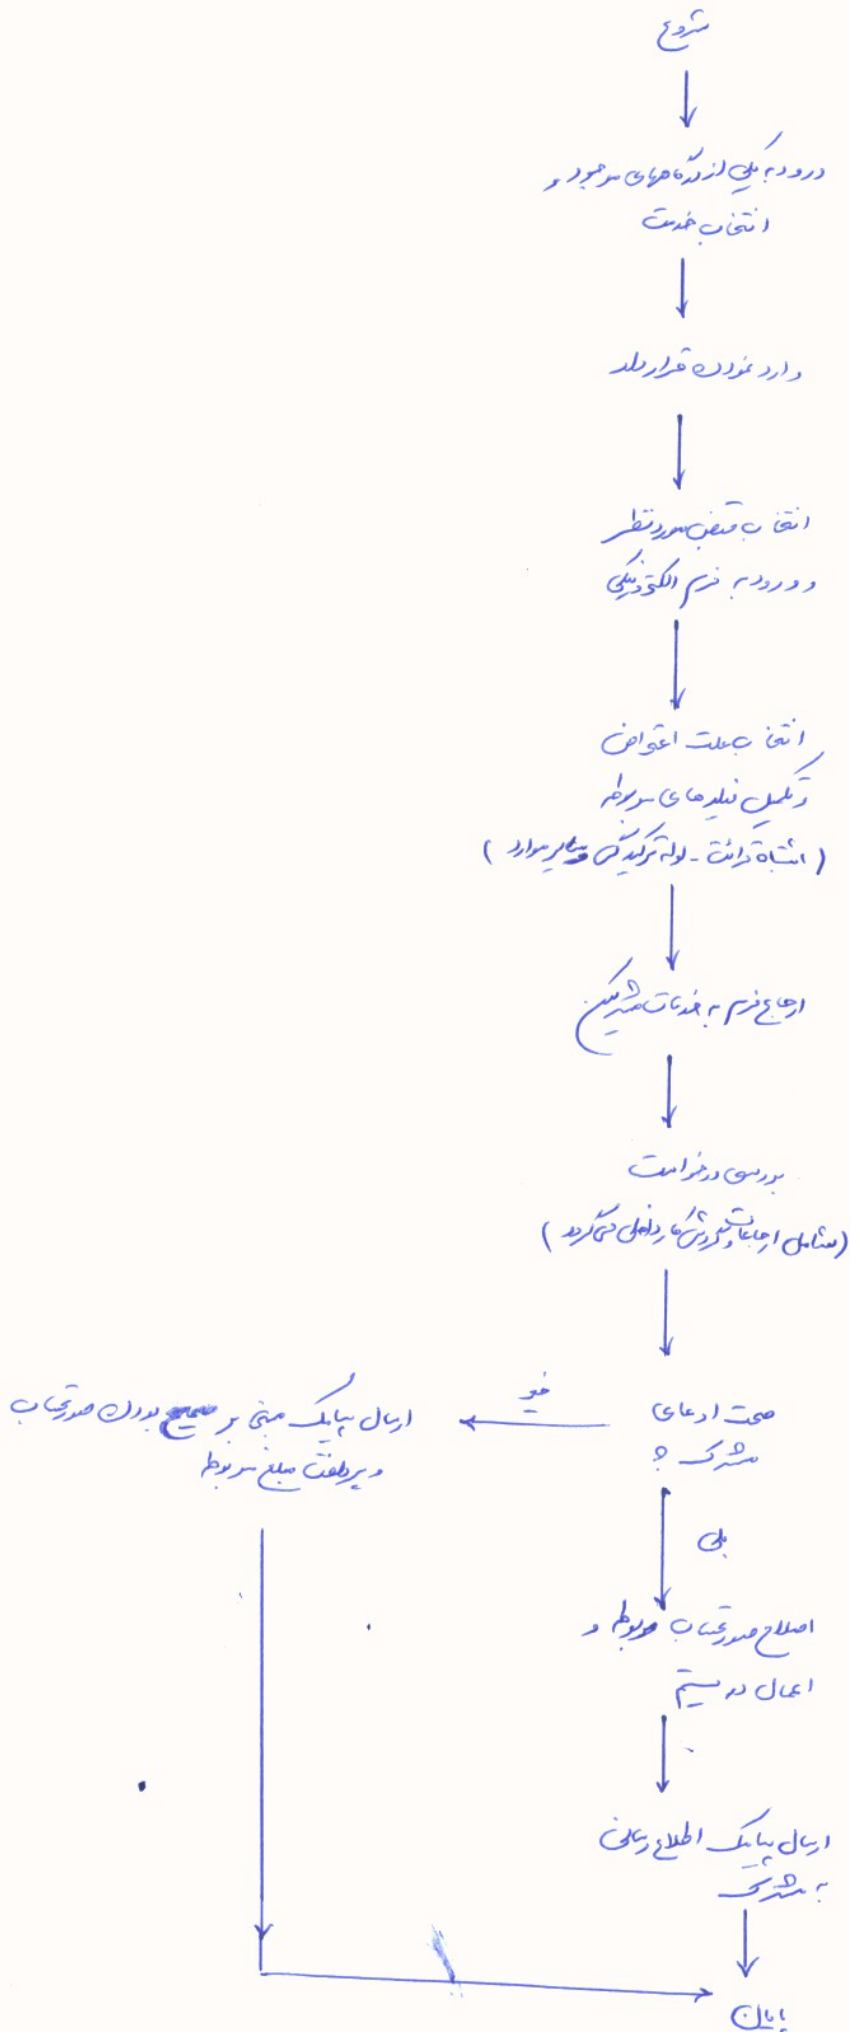 شروع
ورود به یکی از درگاههای موجود و
انتخاب خدمت
وارد نمودن قرارداد
انتخاب قبض مورد نظر
و ورود به فرم الکترونیکی
انتخاب علت اعتراض
و تکمیل فیلدهای مربوطه
(اشتباه قرائت - لوله ترکیدگی و سایر موارد)
ارجاع فرم به خدمات مشترکین
بررسی درخواست
(شامل ارجاعات و گردش کار داخلی می گردد)
صحت ادعای
مشترک ؟
خیر
ارسال پیامک مبنی بر صحیح بودن صورتحساب
و پرداخت مبلغ مربوطه
بلی
اصلاح صورتحساب مربوطه و
اعمال در سیستم
ارسال پیامک اطلاع رسانی
به مشترک
پایان